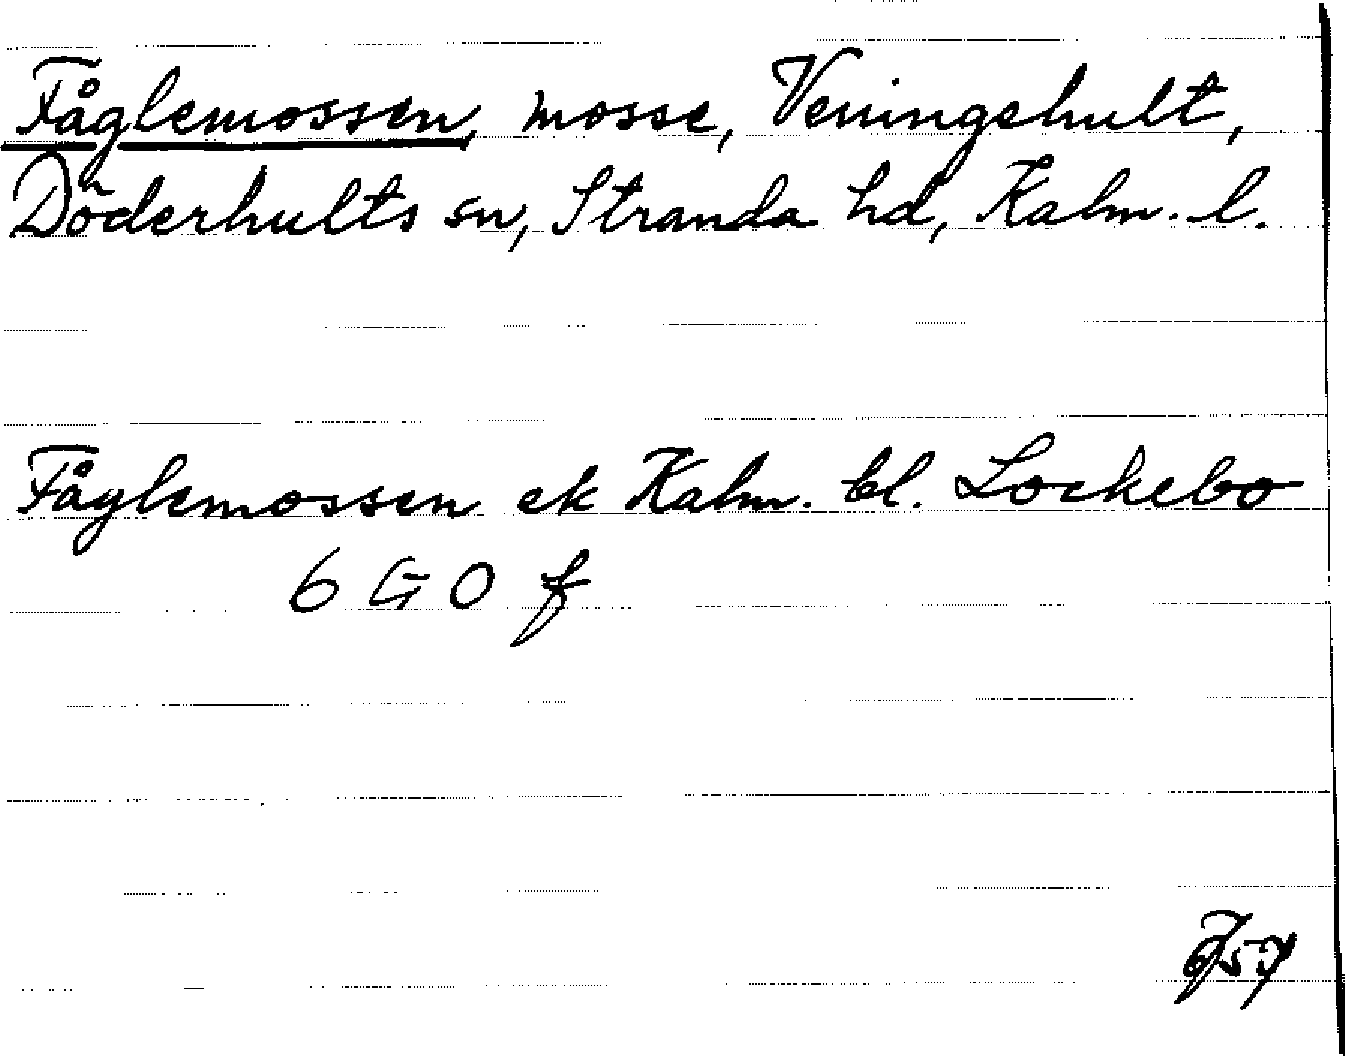 Fåglemossen, mosse, Veningehult,
Döderhults sn, Stranda hd, Kalm. l.
Fåglemossen ek Kalm. bl. Lockebo
6 G 0 f